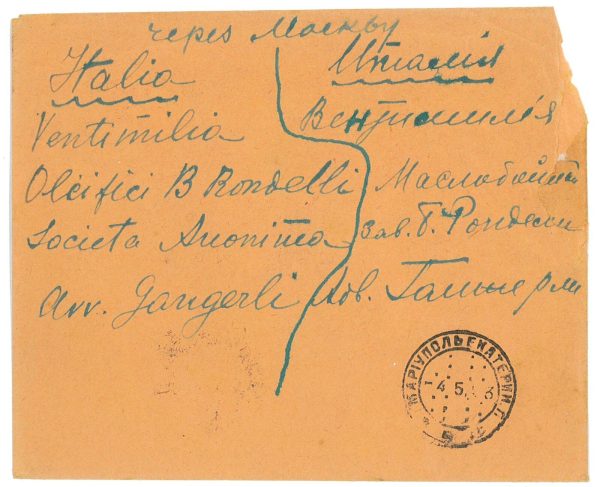 через Москву
Italia
Ventimilia
Olcifici B Rondelli
Societa Anonima
Avv. Gangerli
Италія
Вентимилія
Маслобойный
Зав. Б. Рондели
Адв.
МАРІУПОЛЬ ЕКАТЕРИН. Г.
4 5